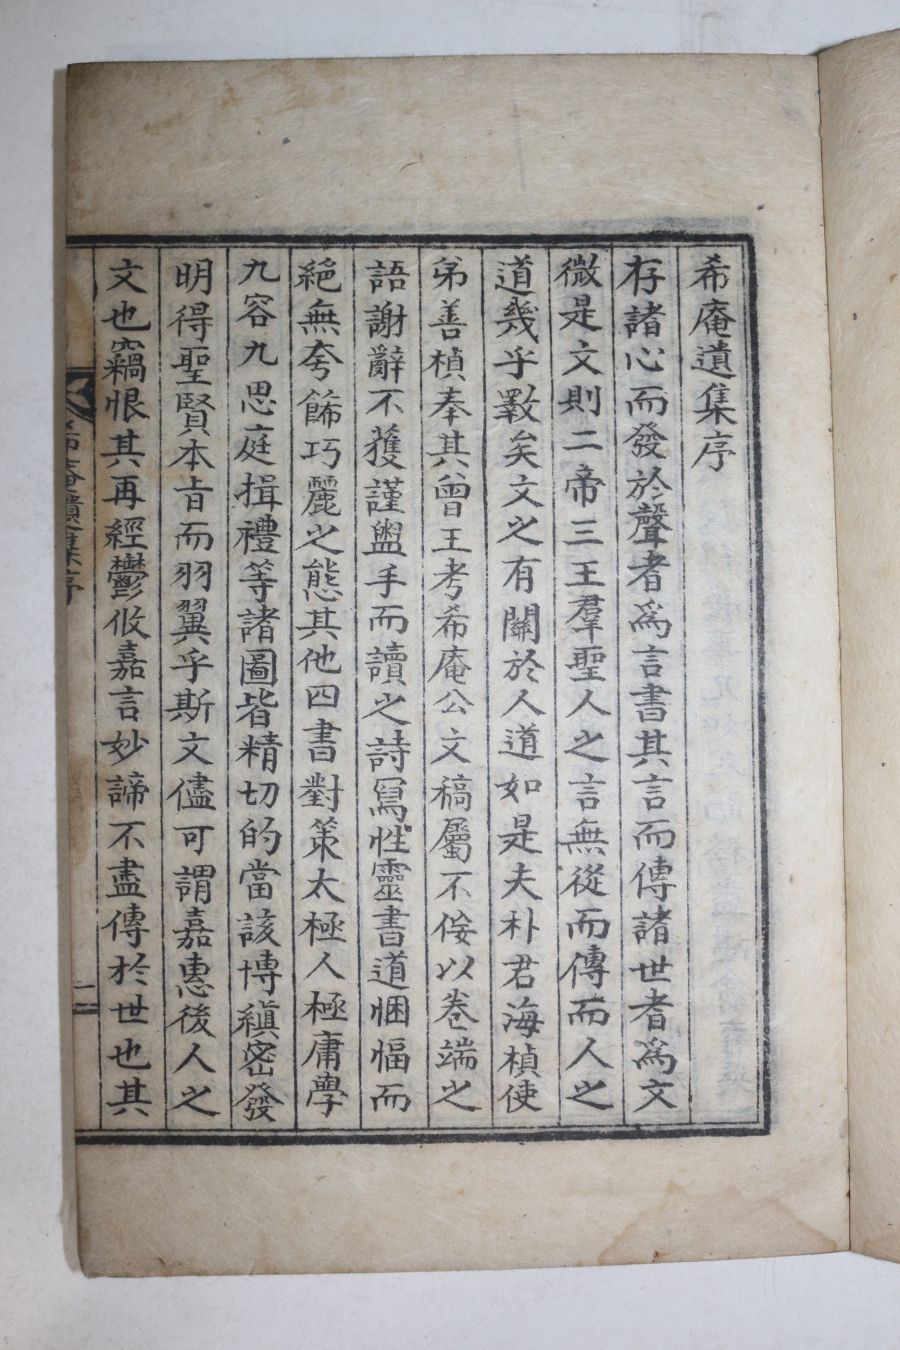 希庵遺集序
存諸心而發於聲者爲言書其言而傳諸世者爲文
微是文則二帝三王羣聖人之言無從而傳而人之
道幾乎斁矣文之有關於人道如是夫朴君海楨使
弟善楨奉其曾王考希庵公文稿屬不佞以卷端之
語謝辭不獲謹盥手而讀之詩寫性靈書道悃愊而
絕無夸餙巧麗之態其他四書對策太極人極庸學
九容九思庭揖禮等諸圖皆精切的當該博縝密發
明得聖賢本旨而羽翼乎斯文儘可謂嘉惠後人之
文也竊恨其再經鬱攸嘉言妙諦不盡傳於世也其
希庵遺集序
一